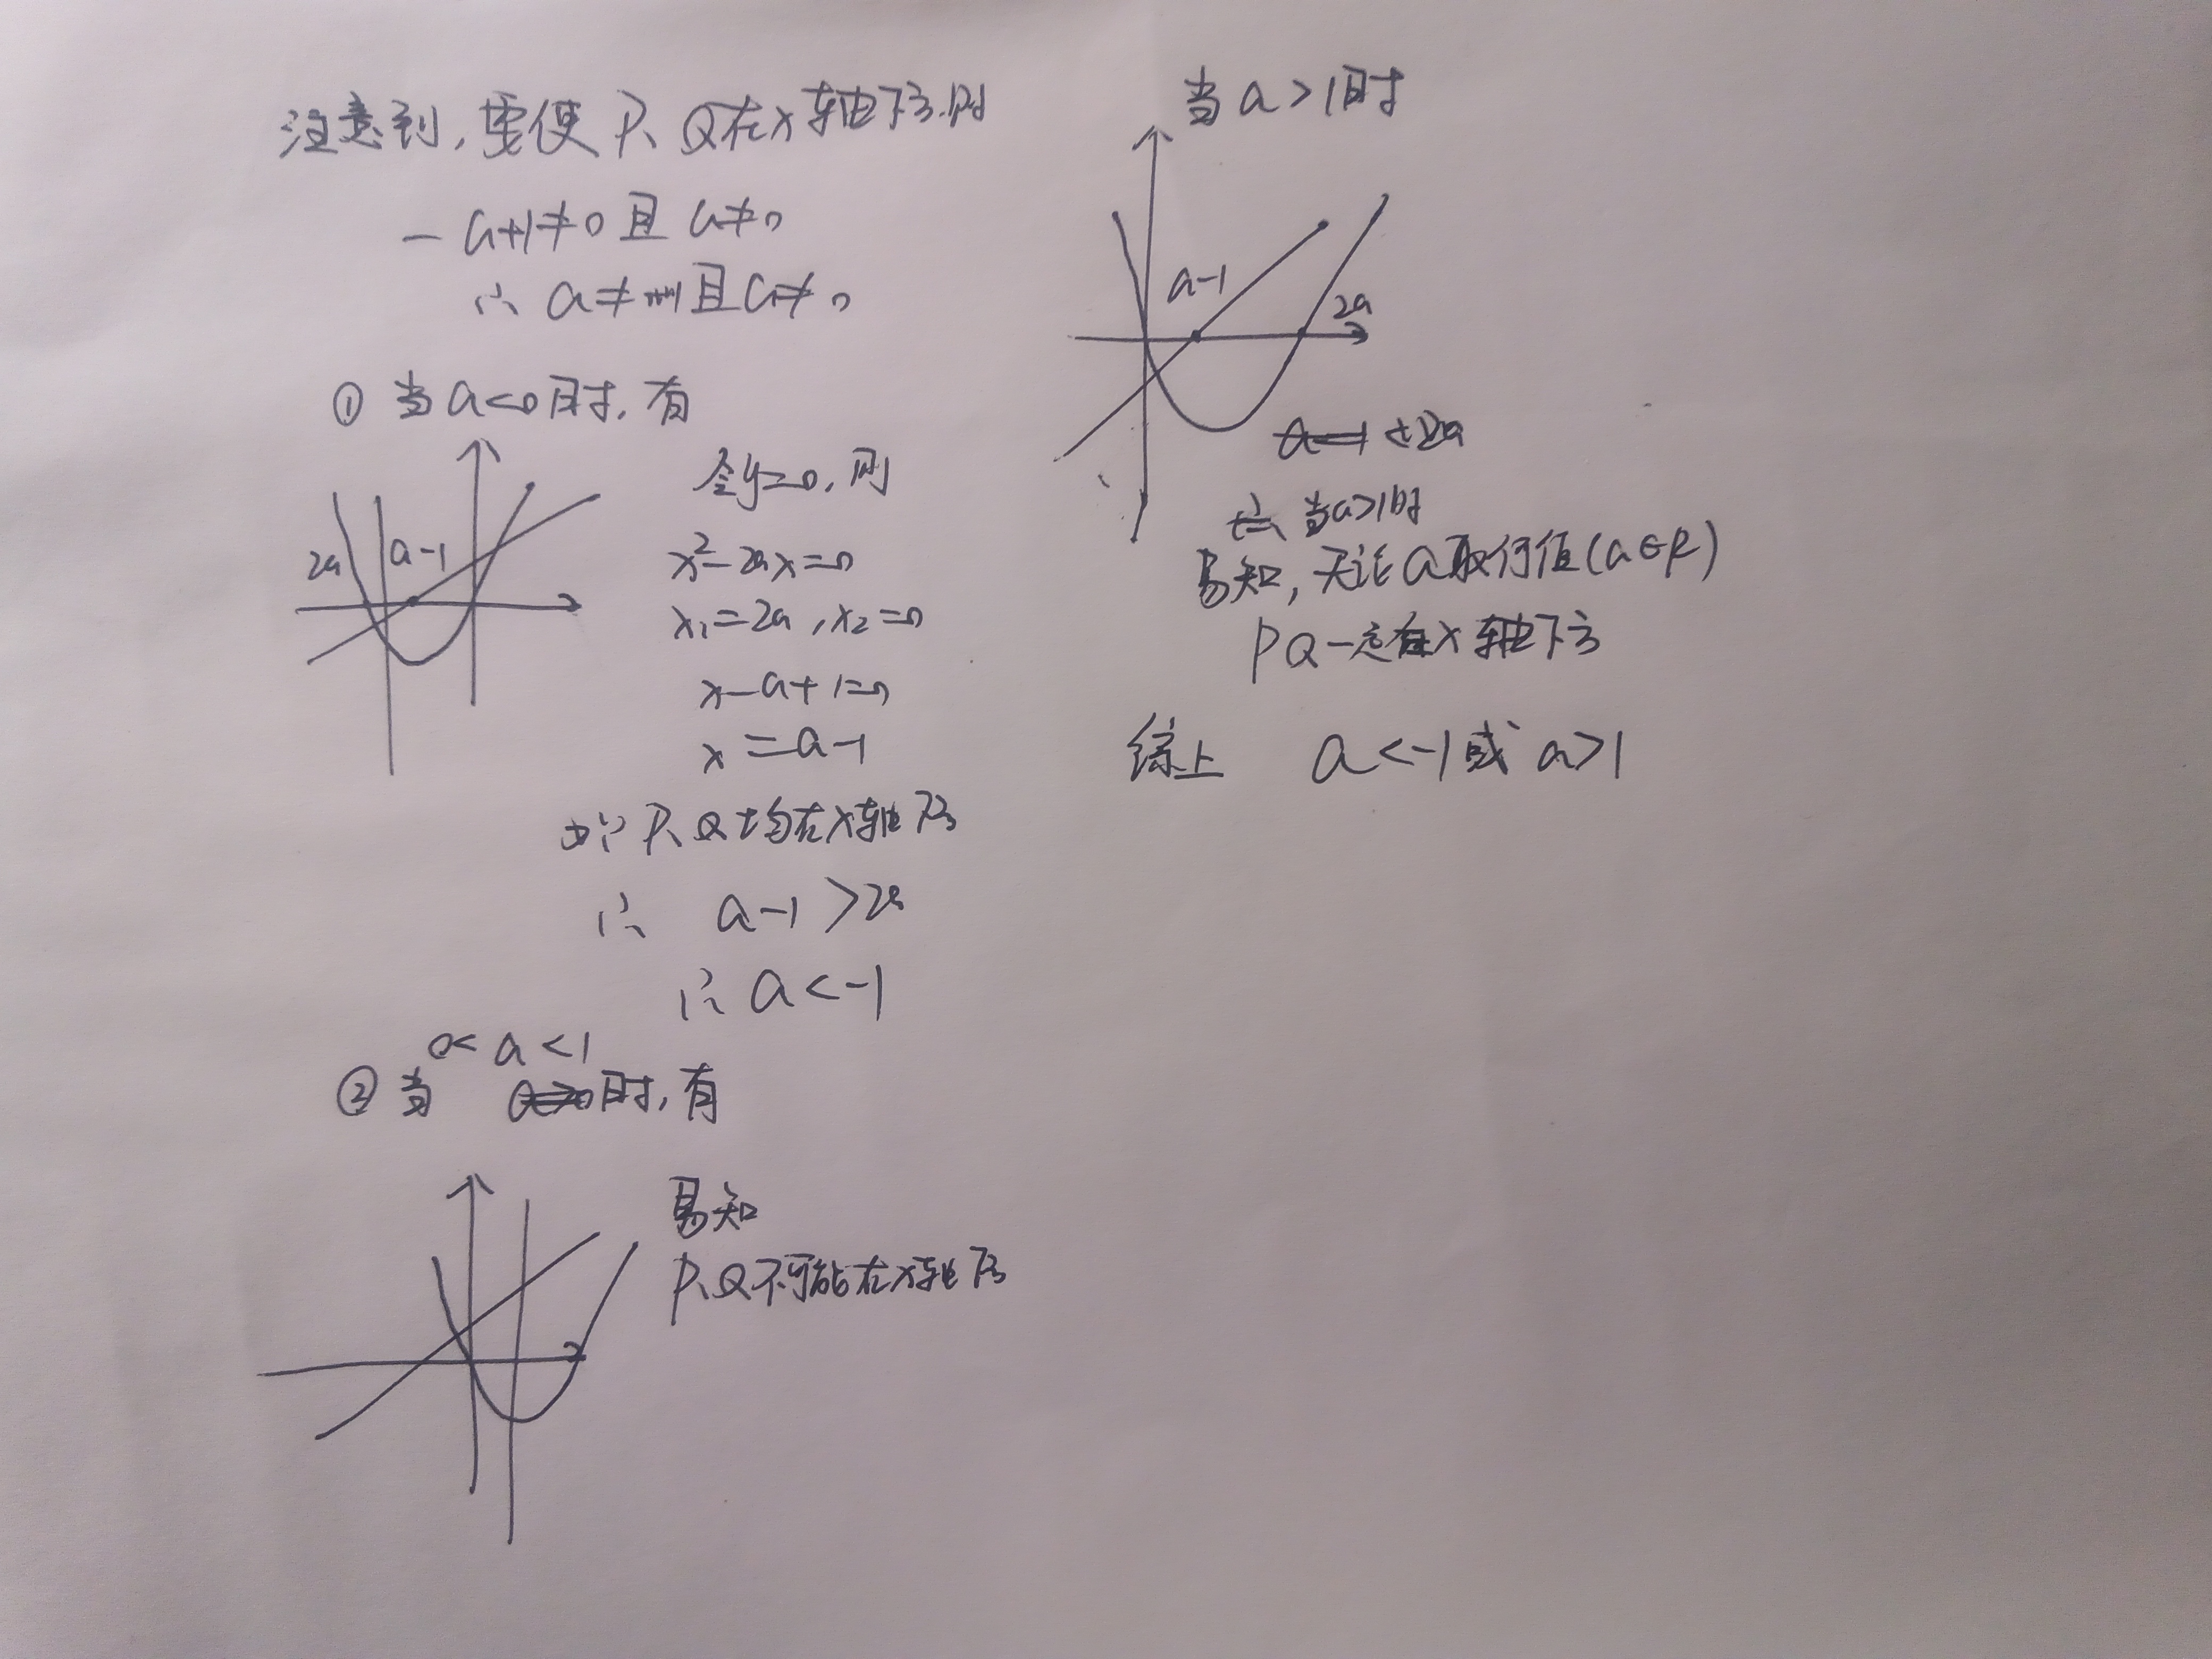 注意到,要使 P、Q在x轴下方.则
-a+1≠0 且 a≠0
∴ a≠1且a≠0
① 当a<0时,有
2a
a-1
令y=0,则
x²-2ax=0
x₁=2a,x₂=0
x-a+1=0
x=a-1
∵P、Q均在x轴下方
∴ a-1>2a
∴ a<-1
0<a<1
② 当 时,有
易知
P、Q不可能在x轴下方
当a>1时
a-1
2a
当a>1时
易知,无论a取何值(a∈R)
PQ一定在x轴下方
综上 a<-1或a>1